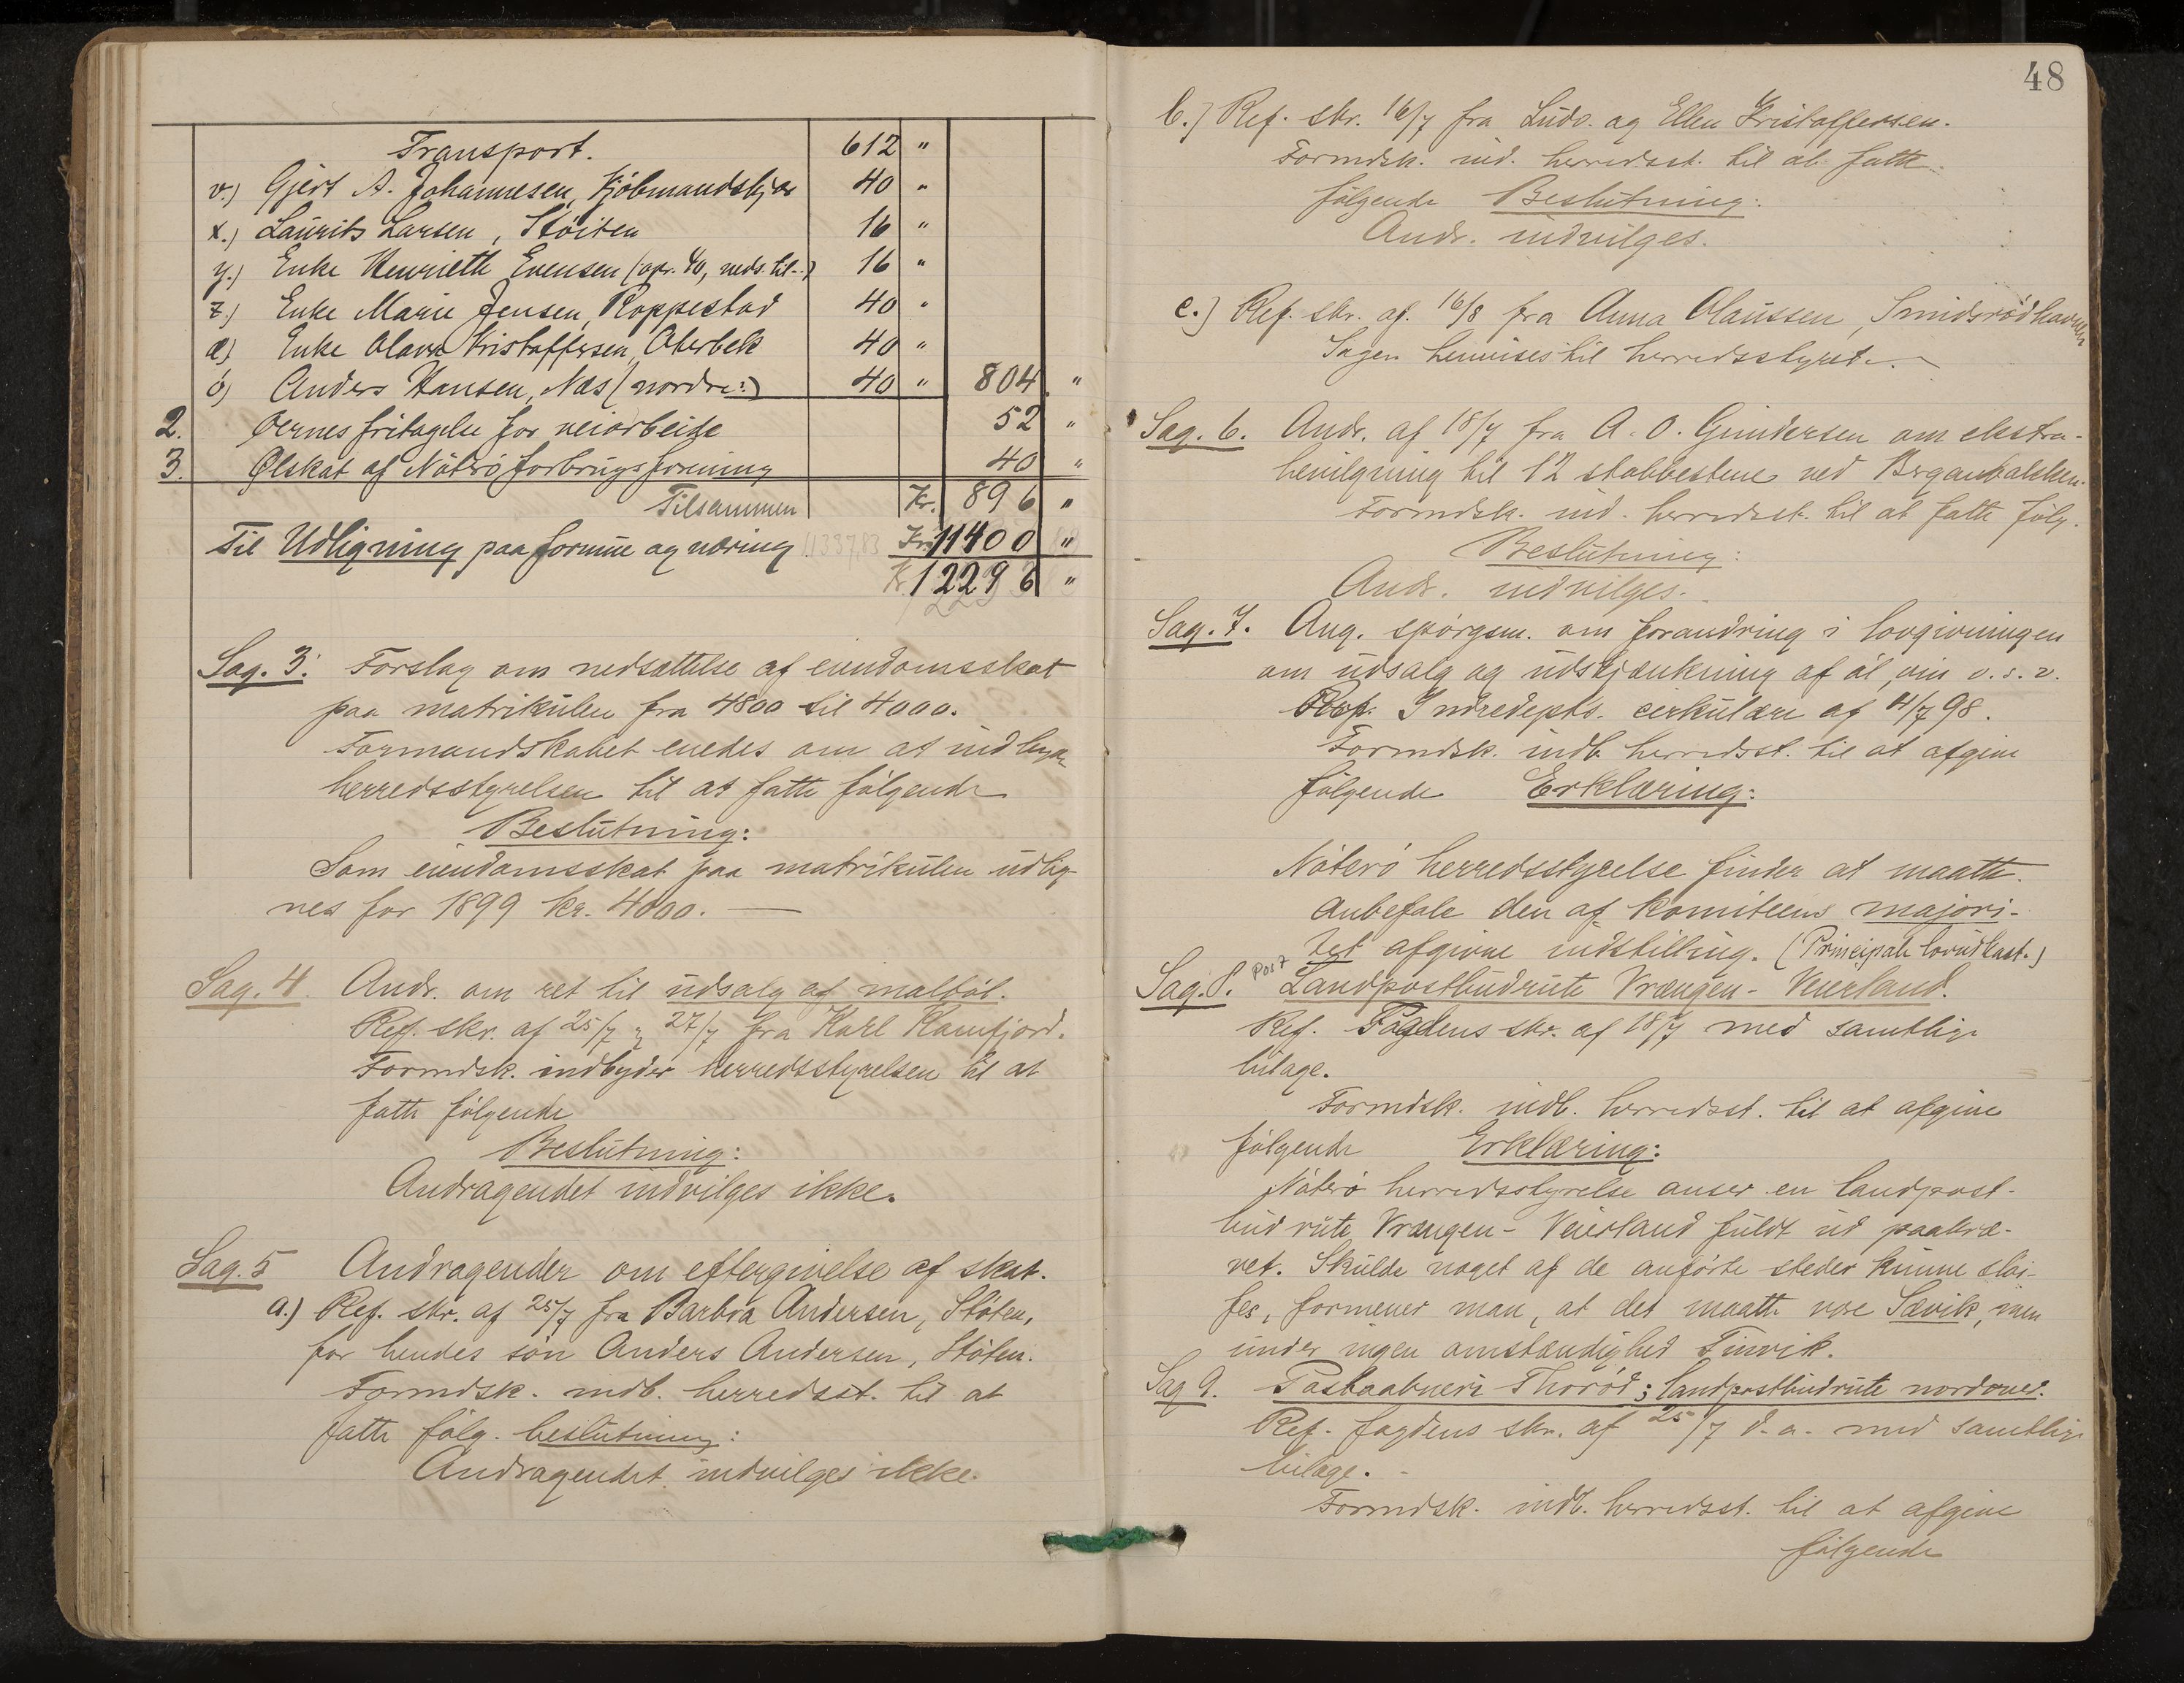 Transport. 612 "
v.) Gjert A. Johannesen, Kjøbmandskjær 40 "
x.) Laurits Larsen, Støiten 16 "
y.) Enke Henriette Evensen (opr. 40, neds. til -) 16 "
z.) Enke Marie Jensen, Roppestad 40 "
æ) Enke Olava Kristoffersen, Oterbek 40 "
ö) Anders Hansen, Næs (nordre:) 40 " 804 "
2. Øernes fritagelse for veiarbeide 52 "
3. Ølskat af Nöterö forbrugsforening 40 "
Tilsammen Kr. 896 "
Til Udligning paa formue og næring 11337,83 Kr. 11400 "
Kr. 12296 "
Sag. 3. Forslag om nedsættelse af eiendomsskat
paa matrikülen fra 4800 til 4000.
Formandskabet enedes om at indbyde
herredsstyrelsen til at fatte følgende
Beslütning:
Som eiendomsskat paa matrikülen üdlig-
nes for 1899 kr. 4000. —
Sag. 4. Andr. om ret til üdsalg af maltöl.
Ref. skr. af 25/7 & 27/7 fra Karl Kamfjord.
Formdsk. indbyder herredsstyrelsen til at
fatte følgende
Beslütning:
Andragendet indvilges ikke.
Sag. 5 Andragender om eftergivelse af skat.
a.) Ref. skr. af 25/7 fra Barbra Andersen, Støten,
for hendes søn Anders Andersen, Støten.
Formdsk. indb. herredsst. til at
fatte følg. beslütning:
Andragendet indvilges ikke.
48
b.) Ref. skr. 16/7 fra Lüdv. og Ellen Kristoffersen.
Formdsk. ind. herredsst. til at fatte
følgende Beslütning:
Andr. indvilges.
c.) Ref. skr. af 16/8 fra Anna Olaüssen, Smidsrödhavnen
Sagen henvises til herredsstyret.
Sag. 6. Andr. af 18/7 fra A. O. Gündersen om ekstra-
bevilgning til 12 stabbestene ved Berganbakken.
Formdsk. ind. herredsst. til at fatte følg.
Beslütning:
Andr. indvilges.
Sag. 7. Ang. spørgsm. om forandring i lovgivningen
om üdsalg og üdskjænkning af öl, vin o. s. v.
Ref. Indredepts. cirkülære af 11/7 98.
Formdsk. indb. herredsst. til at afgive
følgende Erklæring:
Nöterö herredsstyrelse finder at maatte
anbefale den af komiteens majori-
tet afgivne indstilling. (Principale lovüdkast.)
Sag. 8. Post Landpostbüdrüte Vrængen - Veierland.
Ref. Fogdens skr. af 18/7 med samtlige
bilage.
Formdsk. indb. herredsst. til at afgive
følgende Erklæring:
Nöterö herredsstyrelse anser en landpost-
büdrüte Vrængen - Veierland füldt üd paakræ-
vet. Skülde noget af de anførte steder künne sløi-
fes, formener man, at det maatte være Sævik, men
ünder ingen omstændighed Tinvik.
Sag 9. Postaabneri Thoröd; landpostbüdrüte nordover.
Ref. fogdens skr. af 25/7 d. a. med samtlige
bilage.
Formdsk. indb. herredsst. til at afgive
følgende